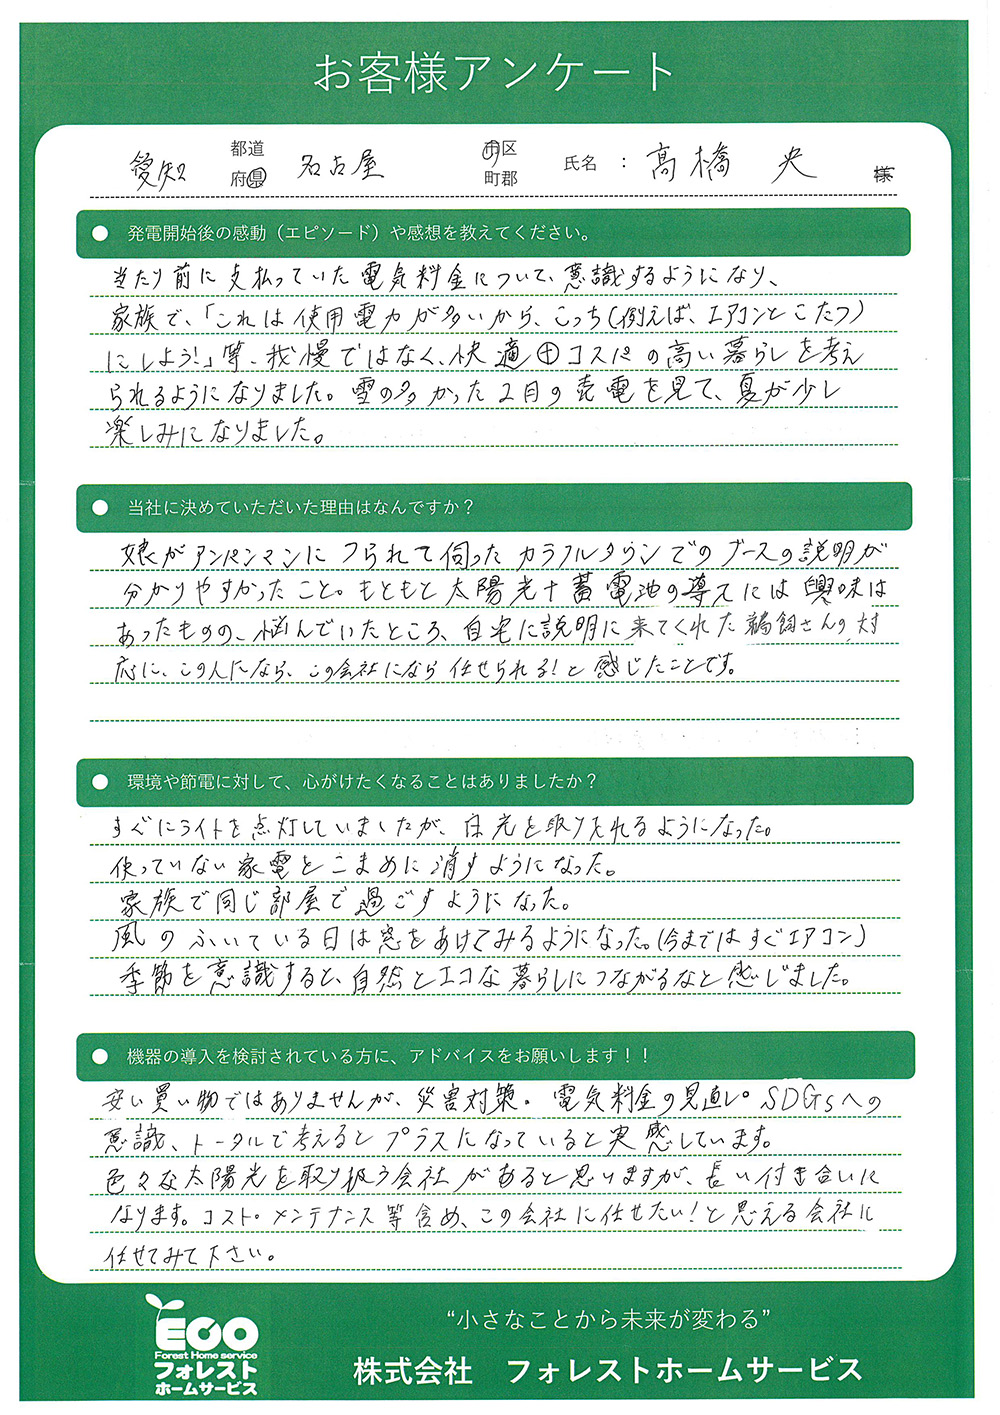 お客様アンケート
愛知 都道府県 名古屋 市区町郡 氏名 : 高橋 央 様
● 発電開始後の感動（エピソード）や感想を教えてください。
当たり前に支払っていた電気料金について、意識するようになり、
家族で、「これは使用電力が多いから、こっち(例えば、エアコンとこたつ)
にしよう!」等、我慢ではなく、快適⊕コスパの高い暮らしを考え
られるようになりました。雪の多かった2月の売電を見て、夏が少し
楽しみになりました。
● 当社に決めていただいた理由はなんですか？
娘がアンパンマンにつられて伺ったカラフルタウンでのブースの説明が
分かりやすかったこと。もともと太陽光+蓄電池の導入には興味は
あったものの、悩んでいたところ、自宅に説明に来てくれた鵜飼さんの対
応に、この人になら、この会社になら任せられる!と感じたことです。
● 環境や節電に対して、心がけたくなることはありましたか？
すぐにライトを点灯していましたが、日光を取り入れるようになった。
使っていない家電をこまめに消すようになった。
家族で同じ部屋で過ごすようになった。
風のふいている日は窓をあけてみるようになった。(今まではすぐエアコン)
季節を意識すると、自然とエコな暮らしにつながるなと感じました。
● 機器の導入を検討されている方に、アドバイスをお願いします！！
安い買い物ではありませんが、災害対策。電気料金の見直し。SDGsへの
意識、トータルで考えるとプラスになっていると実感しています。
色々な太陽光を取り扱う会社があると思いますが、長い付き合いに
なります。コスト・メンテナンス等含め、この会社に任せたい!と思える会社に
任せてみて下さい。
ECO
Forest Home service
フォレスト
ホームサービス
“小さなことから未来が変わる”
株式会社 フォレストホームサービス